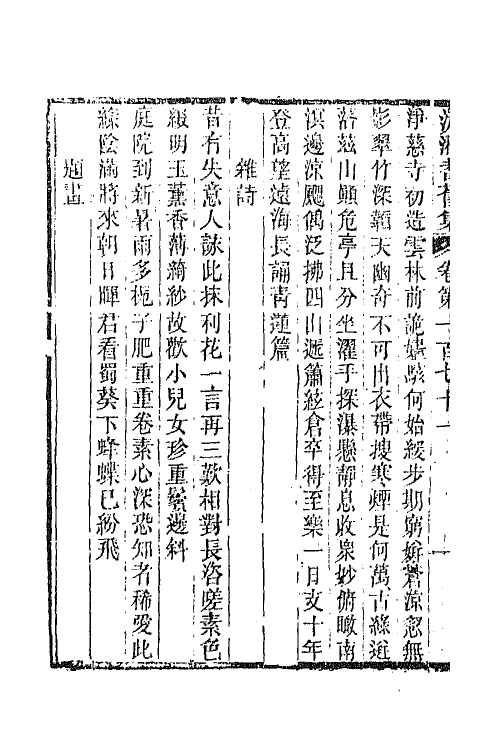 淨慈寺初造雲林前詭嬉駭何始緩步期窮媚蒼涼忽無
影翠竹深韜天幽奇不可出衣帶搜寒煙是何萬古綠近
落茲山顛危亭且分坐濯手探瀑懸靜息收衆妙俯瞰南
溟邊涼颸偶泛拂四山遞簫絃倉卒得至樂一日支十年
登高望遠海長誦青蓮篇
雜詩
昔有失意人詠此抹利花一言再三歎相對長咨嗟素色
綴明玉薰香薄綺紗故歡小兒女珍重鬢邊斜
庭院到新暑雨多梔子肥重重卷素心深恐知者稀愛此
綠陰滿將來朝日暉君看蜀葵下蜂蝶已紛飛
題畫